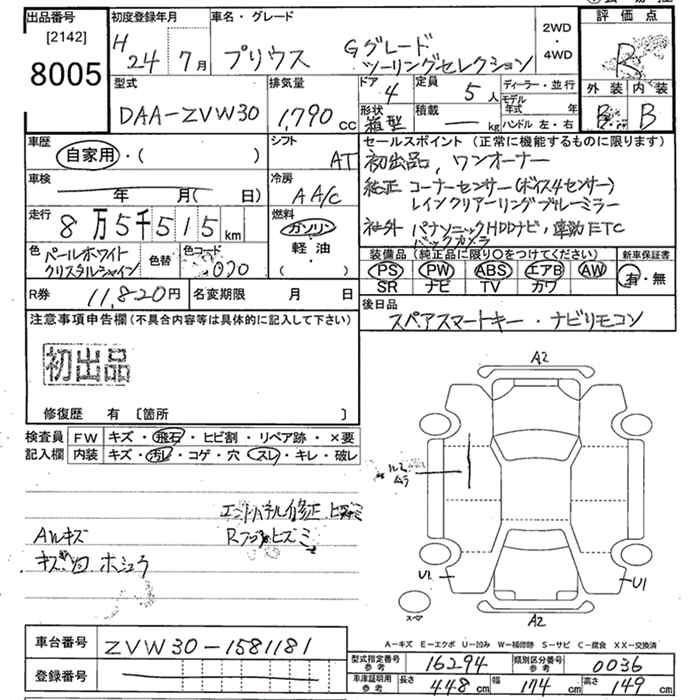 出品番号 初度登録年月 車名・グレード 評価点
[2142] H 24年 7月 プリウス Gグレード ツーリングセレクション 2WD・4WD R
8005
型式 排気量 ドア 4 定員 5人 ディーラー・並行 外装 内装
DAA-ZVW30 1,790cc 形状 箱型 積載 — kg モデル年式 年 B B
ハンドル 左・右
車歴 シフト セールスポイント(正常に機能するものに限ります)
自家用・( ) AT 初出品,ワンオーナー
車検 冷房 純正 コーナーセンサー(ボイス4センサー)
年 月( 日) A A/C レインクリアーリングブルーミラー
走行 燃料 社外 パナソニックHDDナビ,車動ETC
8万5千515km ガソリン バックカメラ
色 パールホワイト 色替 色コード 軽・油 装備品(純正品に限り○をつけてください) 新車保証書
クリスタルシャイン 070 ・( ) PS PW ABS エアB AW 有・無
SR ナビ TV カワ
R券 11,820円 名変期限 月 日 後日品
注意事項申告欄(不具合内容等は具体的に記入して下さい) スペアスマートキー・ナビリモコン
初出品
修復歴 有 [箇所 ]
検査員 FW キズ・飛石・ヒビ割・リペア跡・×要
記入欄 内装 キズ・汚レ・コゲ・穴・スレ・キレ・破レ
A2
エンドパネル修正
AWキズ
U1 U1
スペア
A2
A-キズ E-エクボ U-凹み W-補修跡 S-サビ C-腐食 XX-交換済
車台番号 ZVW30-1581181
登録番号
型式指定番号 参考 16294 類別区分番号 参考 0036
車庫証明用 参考 長さ 448cm 幅 174cm 高さ 149cm